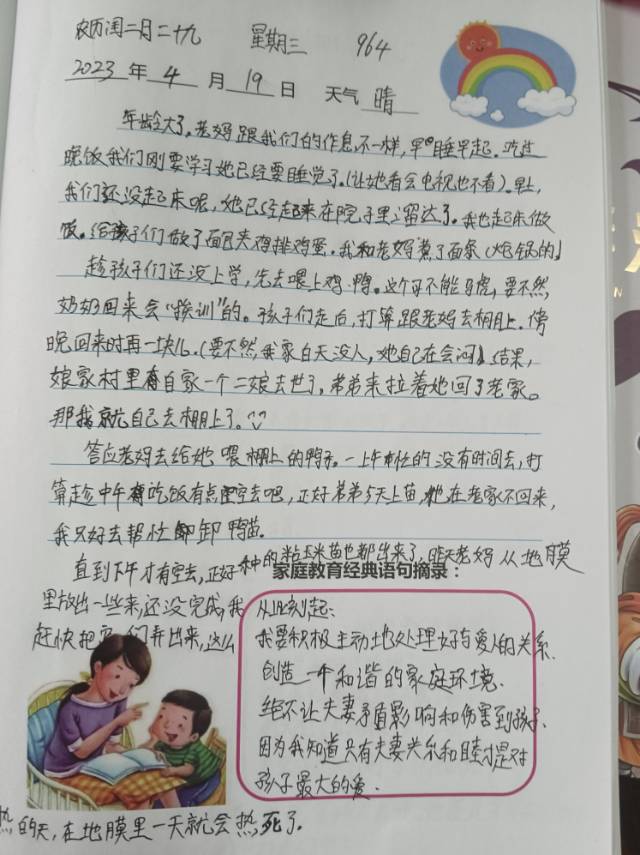 农历闰二月二十九 星期三 964
2023年4月19日 天气晴
年龄大了,老妈跟我们的作息不一样,早睡早起。吃过
晚饭我们刚要学习她已经要睡觉了。(让她看会电视也不看)。早上,
我们还没起床呢,她已经起来在院子里溜达了。我也起床做
饭。给孩子们做了面包夹鸡排鸡蛋。我和老妈煮了面条(炝锅的)
趁孩子们还没上学,先去喂上鸡、鸭。这个可不能马虎,要不然,
奶奶回来会“挨训”的。孩子们走后,打算跟老妈去棚上。傍
晚回来时再一块儿。(要不然,我家白天没人,她自己在会闷)。结果,
娘家村里有自家一个二娘去世了,弟弟来拉着她回了老家。
那我就自己去棚上了。
答应老妈去给她喂棚上的鸭子。一上午忙的没有时间去,打
算趁中午有吃饭有点空去吧,正好弟弟5天上苗,他在老家不回来,
我只好去帮忙卸鸭苗。
直到下午才有空去,正好种的粘玉米苗也都出来了,昨天老妈从地膜
家庭教育经典语句摘录:
里放出一些来,还没完成,我
赶快把它们弄出来,这么
热的天,在地膜里一天就会热死了。
从此刻起:
我要积极主动地处理好与爱人的关系.
创造一个和谐的家庭环境.
绝不让夫妻矛盾影响和伤害到孩子.
因为我知道只有夫妻关系和睦才是对
孩子最大的爱.